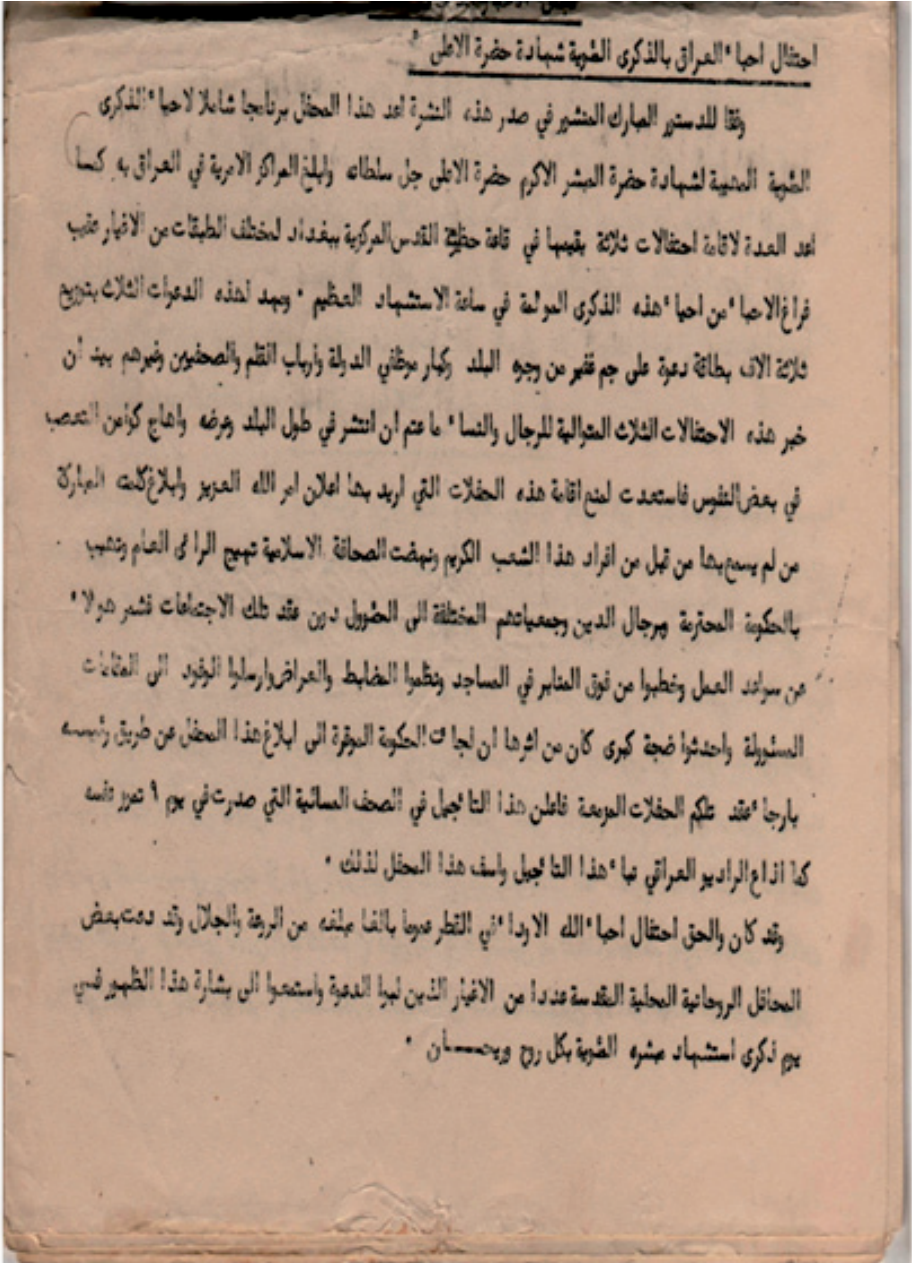 احتفال احباء العراق بالذكرى المئوية شهادة حضرة الاعلى
وفقا للدستور المبارك المنشور في صدر هذه النشرة اعد هذا المحفل برنامجا شاملا لاحياء الذكرى
المئوية المهيبة لشهادة حضرة المبشر الاكرم حضرة الاعلى جل سلطانه وابلغ المراكز الامرية في العراق به كما
اعد العدة لاقامة احتفالات ثلاثة يقيمها في قاعة حظيرة القدس المركزية ببغداد لمختلف الطبقات من الاغيار عقيب
فراغ الاحباء من احياء هذه الذكرى المولمة في ساعة الاستشهاد العظيم ٠ ومهد لهذه الدعوات الثلاث بتوزيع
ثلاثة الاف بطاقة دعوة على جم غفير من وجوه البلد وكبار موظفي الدولة وارباب القلم والصحفيين وغيرهم بيد أن
خبر هذه الاحتفالات الثلاث المتوالية للرجال والنساء ما عتم ان انتشر في طول البلد وعرضه واهاج كوامن التعصب
في بعض النفوس فاستعدت لمنع اقامة هذه الحفلات التي اريد بها اعلان امر الله العزيز وابلاغ كلمته المباركة
من لم يسمع بها من قبل من افراد هذا الشعب الكريم ونهضت الصحافة الاسلامية تهيج الراءى العام وتهيب
بالحكومة المحترمة وبرجال الدين وجمعياتهم المختلفة الى الحؤول دون عقد تلك الاجتماعات فشمر هولاء
عن سواعد العمل وخطبوا من فوق المنابر في المساجد ونظموا المضابط والعرائض وارسلوا الوفود الى المقامات
المسئوولة واحدثوا ضجة كبرى كان من اثرها ان لجاءت الحكومة الموقرة الى ابلاغ هذا المحفل عن طريق رئيسه
بارجاء عقد تلكم الحفلات المزمعة فاعلن هذا التاءجيل في الصحف المسائية التي صدرت في يوم ٩ تموز نفسه
كما اذاع الراديو العراقي نباء هذا التاءجيل واسف هذا المحفل لذلك ٠
وقد كان والحق احتفال احباء الله الاوداء في القطر عموما بالغا مبلغه من الروعة والجلال وقد دعت بعض
المحافل الروحانية المحلية المقدسة عددا من الاغيار الذين لبوا الدعوة واستمعوا الى بشارة هذا الظهور فسي
يوم ذكرى استشهاد مبشره المئوية بكل روح وريحـــان ٠